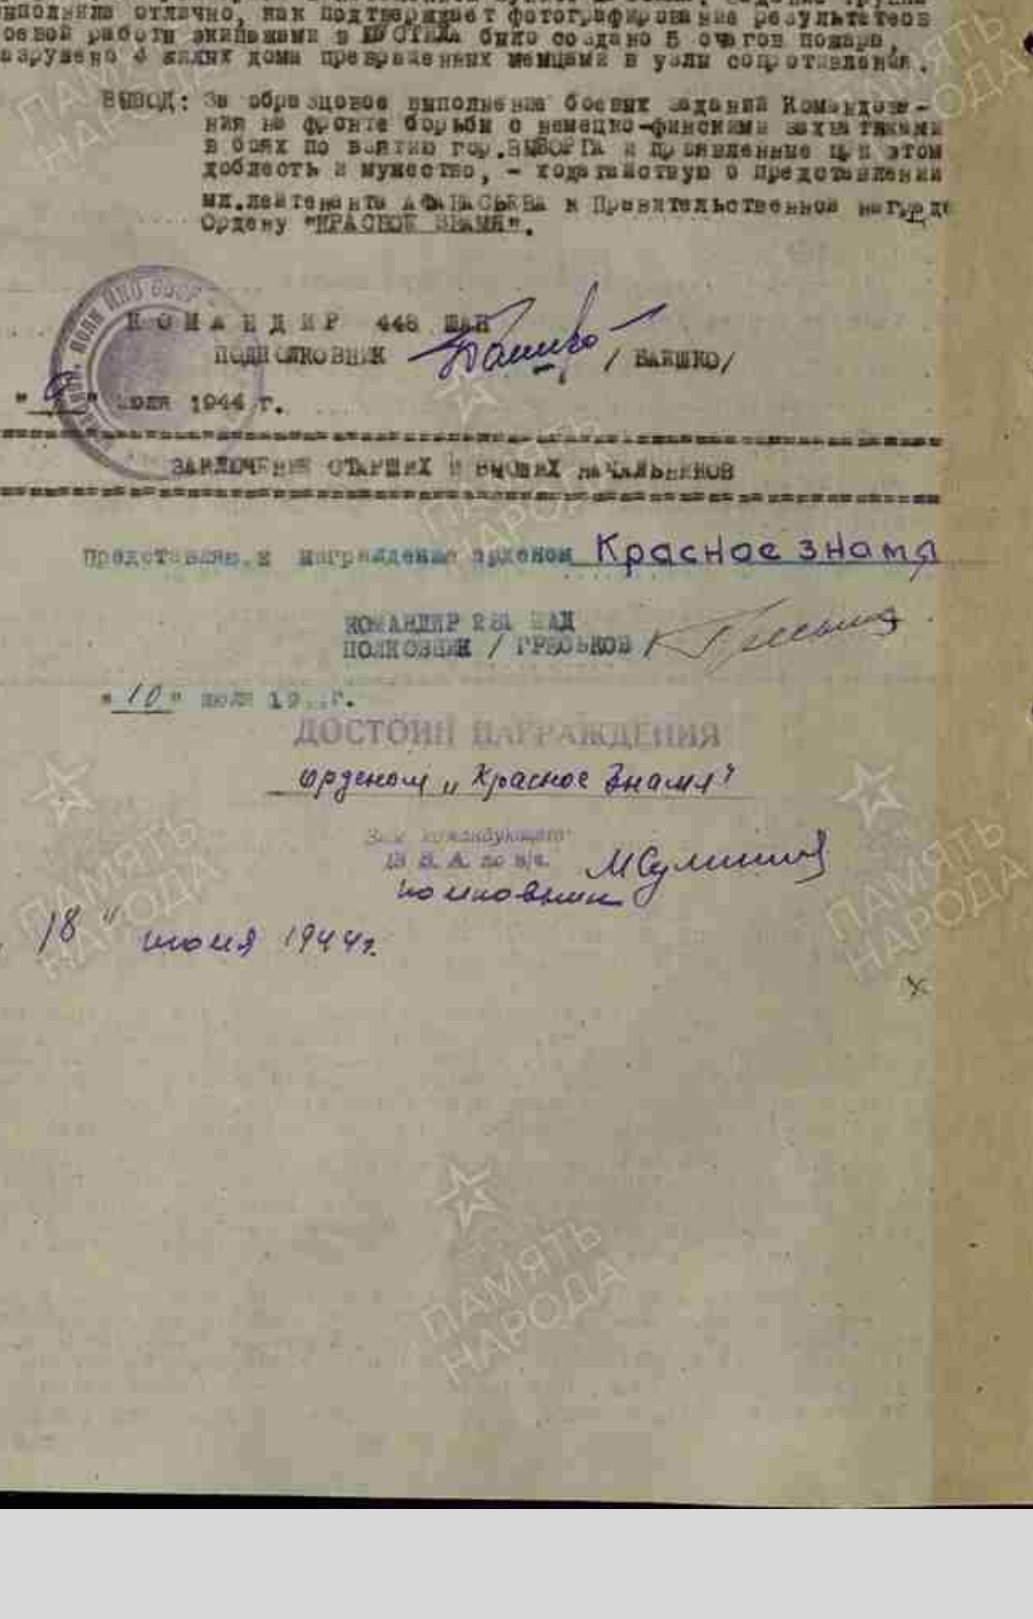 выполнила отлично, как подтверждает фотографирование результатов
оевой работы экипажами в КУОТИЛА было создано 5 очагов пожара,
азрушено 4 жилых дома превращенных немцами в узлы сопротивления.
ВЫВОД: За образцовое выполнение боевых заданий Командова-
ния на фронте борьбы с немецко-финскими захватчиками
в боях по взятию гор.ВЫБОРГА и проявленные при этом
доблесть и мужество, - ходатайствую о представлении
мл.лейтенанта АФАНАСЬЕВА к Правительственной награде
Ордену "КРАСНОЕ ЗНАМЯ".
КОМАНДИР 448 ШАП
ПОДПОЛКОВНИК /БАЕШКО/
"9" июля 1944 г.
ЗАКЛЮЧЕНИЕ СТАРШИХ И ВЫСШИХ НАЧАЛЬНИКОВ
Представляю к награждению орденом Красное знамя
КОМАНДИР 281 ШАД
ПОЛКОВНИК /ГРЕСЬКОВ/
"10" июля 19 г.
ДОСТОИН НАГРАЖДЕНИЯ
орденом "Красное Знамя"
Зам командующего
13 В. А. по п/ч.
полковник МСулимов
18" июля 1944г.
ПАМЯТЬ
НАРОДА